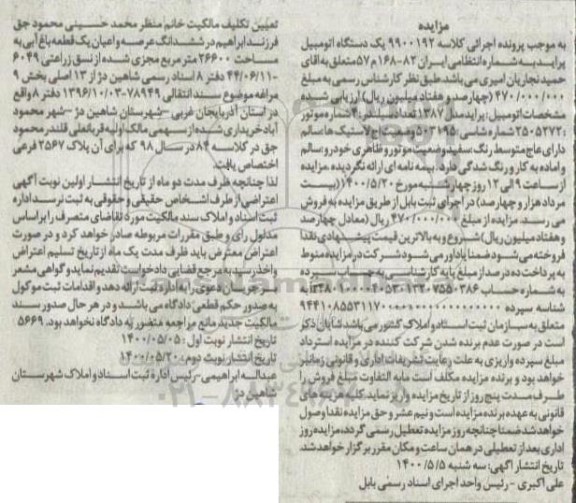 مزایده
به موجب پرونده اجرائی کلاسه ۹۹۰۰۱۹۲ یک دستگاه اتومبیل
پراید به شماره انتظامی ایران ۸۲-۱۶۸م۵۷ متعلق به آقای
حمید نجاریان امیری می باشد طبق نظر کارشناس رسمی به مبلغ
۴۷۰/۰۰۰/۰۰۰ (چهارصد و هفتاد میلیون ریال) ارزیابی شده
مشخصات اتومبیل: پراید مدل ۱۳۸۷ تعداد سیلندر: ۴ شماره موتور
: ۲۵۰۵۲۷۲ شماره شاسی: ۵۰۳۱۹۵ وضعیت تاج لاستیک ها سالم
دارای عاج متوسط رنگ سفید وضعیت موتور و ظاهری خودرو سالم
و آماده به کار و رنگ شدگی دارد. بیمه نامه ای ارائه نگردیده. مزایده
از ساعت ۹ الی ۱۲ روز چهارشنبه مورخ ۱۴۰۰/۵/۲۰ (بیست
مرداد هزار و چهارصد) در اجرای ثبت بابل از طریق مزایده به فروش
می رسد. مزایده از مبلغ ۴۷۰/۰۰۰/۰۰۰ ریال (معادل چهارصد
و هفتاد میلیون ریال) شروع و به بالاترین قیمت پیشنهادی نقدا
فروخته می شود ضمنا یادآور می شود شرکت در مزایده منوط
به پرداخت ده درصد از مبلغ پایه کارشناسی به حساب سپرده
به شماره حساب
شناسه سپرده
متعلق به سازمان ثبت اسناد و املاک کشور می باشد شایان ذکر
است در صورت عدم برنده شدن شرکت کننده در مزایده استرداد
مبلغ سپرده واریزی به علت رعایت تشریفات اداری و قانونی زمانبر
خواهد بود و برنده مزایده مکلف است مابه التفاوت مبلغ فروش را
ظرف مدت پنج روز از تاریخ مزایده واریز نماید. کلیه هزینه های
قانونی به عهده برنده مزایده است و نیم عشر و حق مزایده نقدا وصول
خواهد شد ضمنا چنانچه روز مزایده تعطیل رسمی گردد، مزایده روز
اداری بعد از تعطیلی در همان ساعت و مکان مقرر برگزار خواهد شد.
تاریخ انتشار آگهی: سه شنبه ۱۴۰۰/۵/۵
علی اکبری - رئیس واحد اجرای اسناد رسمی بابل
تعیین تکلیف مالکیت خانم منظر محمد حسینی محمود جق
فرزند ابراهیم در ششدانگ عرصه و اعیان یک قطعه باغ آبی به
مساحت ۲۶۶۰۰ متر مربع مجزی شده از نسق زراعتی ۶۰۴۹
-۴۴/۰۶/۱۱ دفتر ۸ اسناد رسمی شاهین دژ از ۱۳ اصلی بخش ۹
مراغه موضوع سند انتقالی ۷۸۹۴۹-۱۳۹۶/۱۰/۰۳ دفتر ۸ واقع
در استان آذربایجان غربی - شهرستان شاهین دژ - شهر محمود
آباد خریداری شده از سهمی مالک اولیه قربانعلی قلندر محمود
جق در کلاسه ۸۴ در سال ۹۸ که برای آن پلاک ۲۵۶۷ فرعی
اختصاص یافت.
لذا چنانچه ظرف مدت دو ماه از تاریخ انتشار اولین نوبت آگهی
اعتراضی از طرف اشخاص حقیقی و حقوقی به ثبت نرسد اداره
ثبت اسناد و املاک سند مالکیت مورد تقاضای متصرف را بر اساس
مدلول رای و طبق مقررات مربوطه صادر خواهد کرد و در صورت
اعتراض معترض باید ظرف مدت یک ماه از تاریخ تسلیم اعتراض
و اخذ رسید به مرجع قضایی دادخواست تقدیم نماید و گواهی مشعر
بر جریان دعوی را به اداره ثبت ارائه دهد و اقدامات ثبت موکول
به صدور حکم قطعی دادگاه می باشد و در هر حال صدور سند
مالکیت جدید مانع مراجعه متضرر به دادگاه نخواهد بود. ۵۶۶۹
تاریخ انتشار نوبت اول: ۱۴۰۰/۰۵/۰۵
تاریخ انتشار نوبت دوم: ۱۴۰۰/۰۵/۲۰
عبداله ابراهیمی - رئیس اداره ثبت اسناد و املاک شهرستان
شاهین دژ